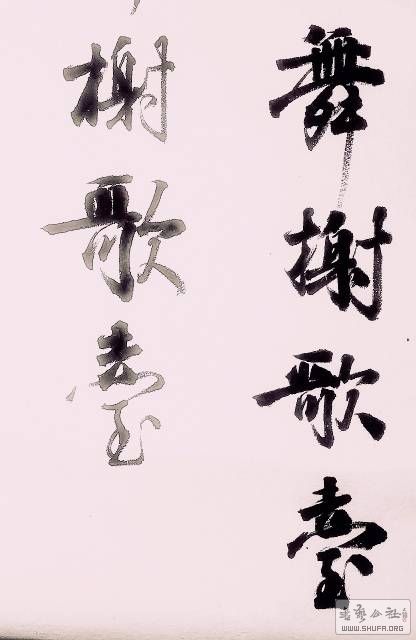 舞榭歌臺
榭歌臺
書藝公社
WWW.SHUFA.ORG